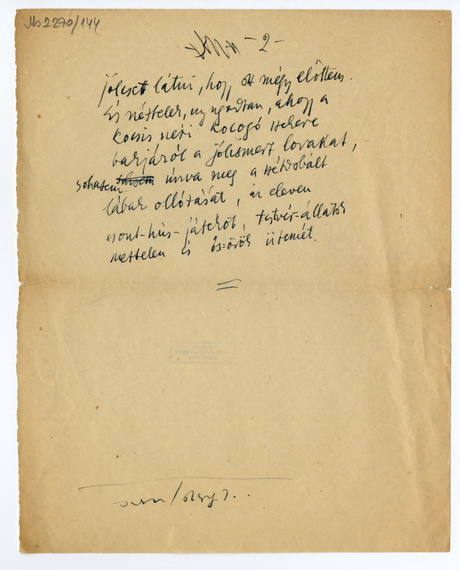 Ms 2270/144
- 2 -
jólesett látni, hogy ott mégy előttem.
És néztelek, nyugodtan, ahogy a
kocsis nézi kocogó szekere
bakjáról a jólismert lovakat, –
sohasem únva meg a szétdobált
lábak ollózását, az eleven
csont-hús-játékot, testvér-állatok
meztelen és ősörök ütemét.